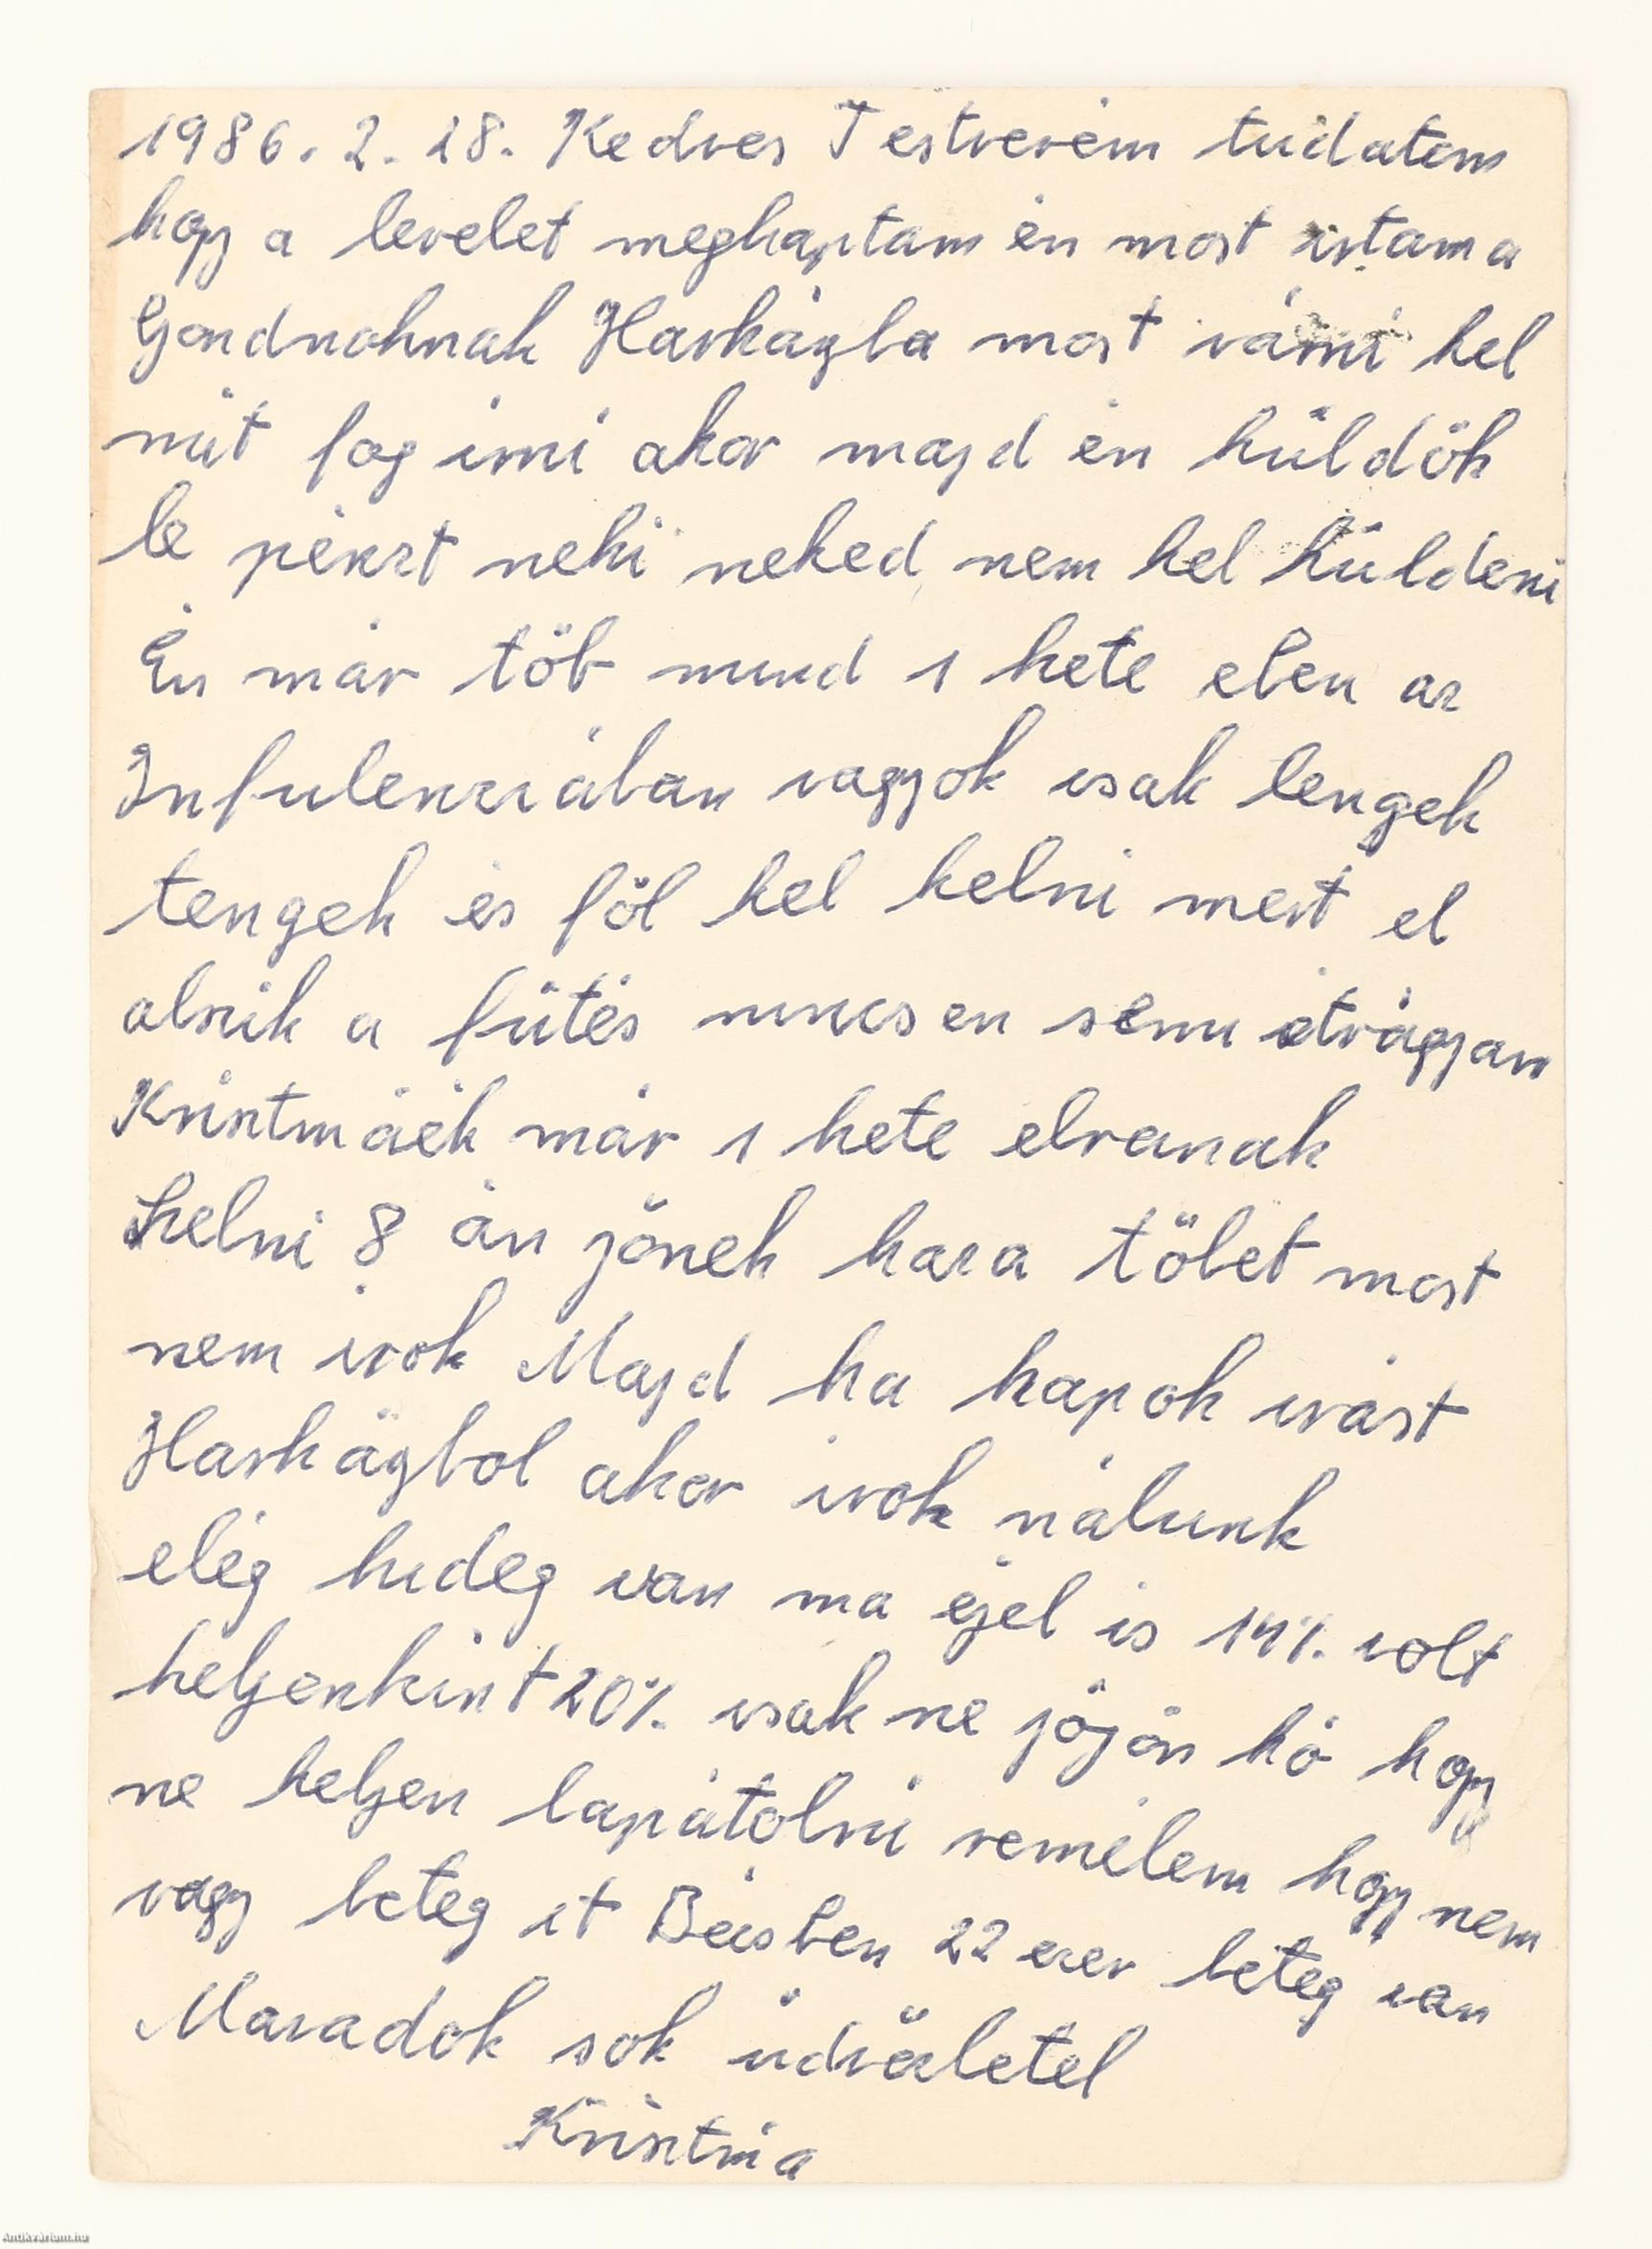 1986. 2. 18. Kedves Testverém tudatom
hogy a levelet meghaptam én most irtam a
Gondnohnah Harkágba most várni kel
mit fog irni akor majd én küldöh
le pénzt neki neked nem kel küldeni
Én már töb mind 1 hete eben az
Infulenziában vagyok csak lengek
tengek és föl kel kelni mert el
alszik a fütés nincsen semi étvágyam
Krisztináék már 1 hete elvanak
helni 8 án jönek haza töbet most
nem irok Majd ha kapok irást
Harkágbol akor irok nálunk
elég hideg van ma éjel is 14%. volt
helyenkint 20%. csak ne jöjön hó hogy
ne kelyen lapátolni remélem hogy nem
vagy beteg it Bécsben 22 ezer beteg van
Maradok sok üdvözletel
Krisztina
Antikvárium.hu